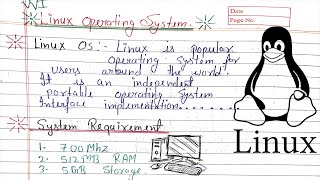 Date
Page No.
Linux Operating System.
Linux OS:- Linux is popular
Operating System for
users around the world.
It is an independent
portable operating System
Interface implementation........
System Requirement
1- 700Mhz
2- 512MB RAM
3- 5GB Storage
Linux